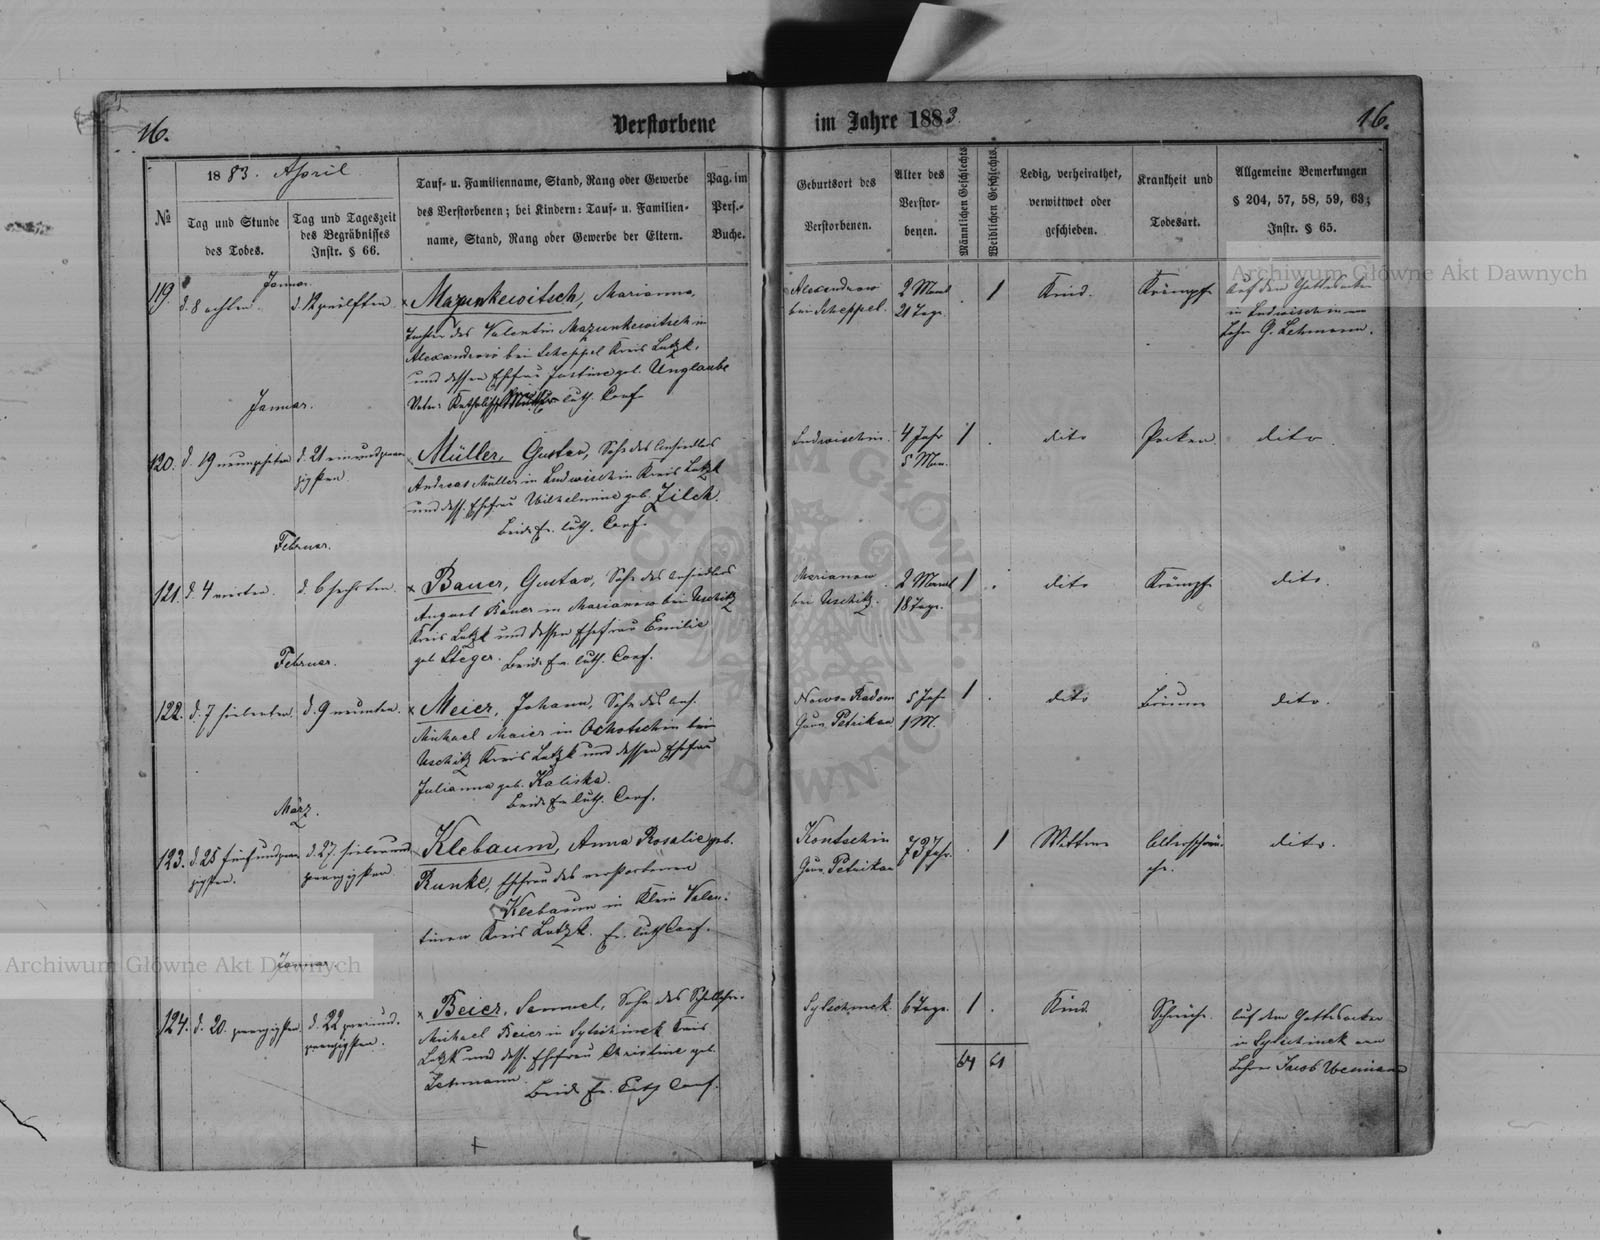 16.
Verstorbene
im Jahre 1883.
16.
1883. April
№
Tag und Stunde
des Todes.
Tag und Tageszeit
des Begräbnisses
Instr. § 66.
Tauf- u. Familienname, Stand, Rang oder Gewerbe
des Verstorbenen; bei Kindern: Tauf- u. Familien-
name, Stand, Rang oder Gewerbe der Eltern.
Pag. im
Pers.-
Buche.
Geburtsort des
Verstorbenen.
Alter des
Verstor-
benen.
Männlichen Geschlechts.
Weiblichen Geschlechts.
Ledig, verheirathet,
verwittwet oder
geschieden.
Krankheit und
Todesart.
Allgemeine Bemerkungen
§ 204, 57, 58, 59, 63;
Instr. § 65.
Januar.
119.
d. 8 achten
d. 12 zwölften
Mazunkewitsch, Marianna,
Tochter des Valentin Mazunkewitsch in
Alexandrow bei Scheppel Kreis Lutzk,
und dessen Ehefrau Justine geb. Unglaube
Vater Katholisch Mutter luth. Conf.
Alexandrow
bei Scheppel.
2 Monat
21 Tage.
1
Kind.
Krämpfe
Auf dem Gottesacker
in Ludwischin vom
Lehrer G. Lehmann.
Januar.
120.
d. 19 neunzehnten
d. 21 einundzwan-
zigsten
Müller, Gustav, Sohn des Ansiedlers
Andreas Müller in Ludwischin Kreis Lutzk
und dess. Ehefrau Wilhelmine geb. Zilch.
Beide Ev. luth. Conf.
Ludwischin.
4 Jahr
5 Mon.
1
dito
Pocken.
dito
Februar.
121.
d. 4 vierten
d. 6 sechsten
Bauer, Gustav, Sohn des Ansiedlers
August Bauer in Marianow bei Uschitz
Kreis Lutzk und dessen Ehefrau Emilie
geb. Steger. Beide Ev. luth. Conf.
Marianow
bei Uschitz.
2 Monat
18 Tage.
1
dito
Krämpfe
dito.
Februar.
122.
d. 7 siebenten
d. 9 neunten
Meier, Johann, Sohn des Ans.
Michael Maier in Ochotschin bei
Uschitz Kreis Lutzk und dessen Ehefrau
Julianna geb. Kaliska.
Beide Ev. luth. Conf.
Nowo-Radom
Gouv. Petrikau
5 Jahr
1 M.
1
dito
Bräune
dito.
März.
123.
d. 25 fünfundzwan-
zigsten.
d. 27. siebenund-
zwanzigsten
Klebaum, Anna Rosalie geb.
Runke, Ehefrau des verstorbenen
Klebaum in Klein Valen-
tinow Kreis Lutzk. Ev. luth Conf.
Gouv. Petrikau
73 Jahr.
1
Wittwe
Altersschwä-
che.
dito.
Januar.
124.
d. 20. zwanzigsten
d. 22 zweiund-
zwanzigsten.
Beier, Samuel, Sohn des Schullehrers
Michael Beier in Sylschinek Kreis
Lutzk und dess. Ehefrau Christine geb.
Lehmann.
Beide Ev. Luth Conf.
Sylschinek
6 Tage.
1
Kind.
Schwäche.
Auf dem Gottesacker
in Sylschinek vom
Lehrer Jacob
61
Archiwum Główne Akt Dawnych
Archiwum Główne Akt Dawnych